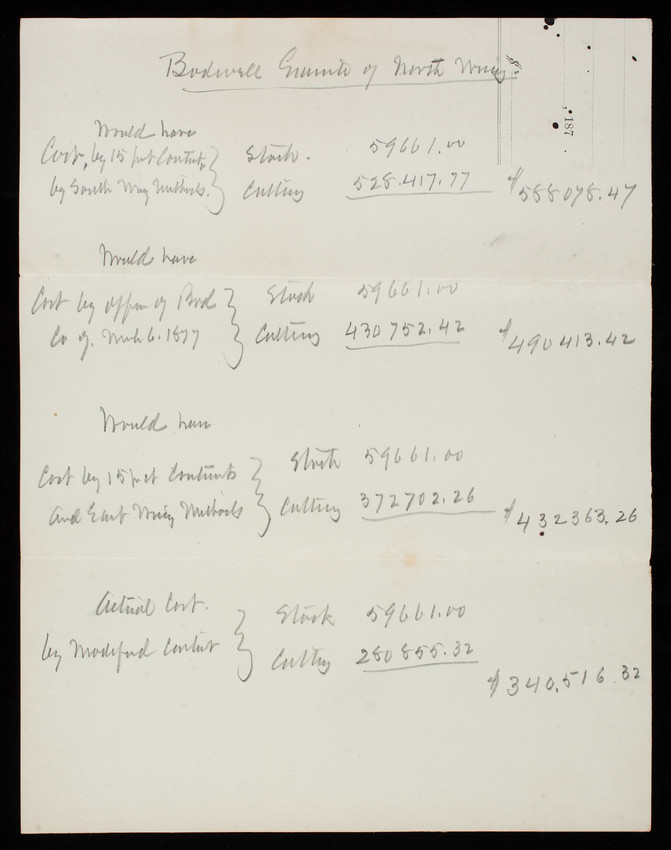 Bodwell Granite of North Wing
, 187
Would have
Cost, by 15 pct Contract, } Stock. 59661.00
by South Wing Methods. } Cutting 528.417.77 $588078.47
Would have
Cost by offer of Bod } Stock 59661.00
Co of. Mch 6. 1877 } Cutting 430752.42 $490413.42
Would have
Cost by 15 pct Contracts } Stock 59661.00
and East Wing Methods } Cutting 372702.26 $432363.26
Actual Cost. } Stock 59661.00
by Modified Contract } Cutting 280855.32
$340.516.32